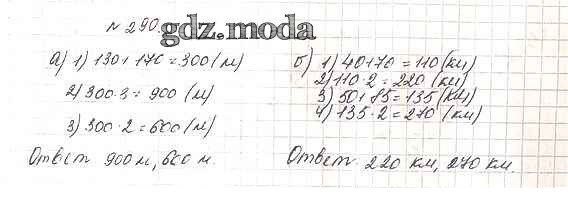 № 290.
gdz.moda
а) 1) 130 + 170 = 300 (м)
2) 300·3 = 900 (м)
3) 300·2 = 600 (м)
Ответ 900 м, 600 м.
б) 1) 40+70 = 110 (км)
2) 110·2 = 220 (км)
3) 50+85 = 135 (км)
4) 135·2 = 270 (км)
Ответ. 220 км, 270 км.